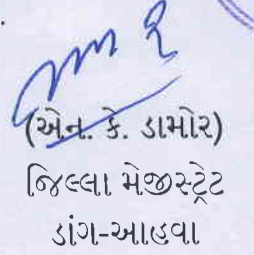 (એન. કે. ડામોર)
જિલ્લા મેજીસ્ટ્રેટ
ડાંગ-આહવા